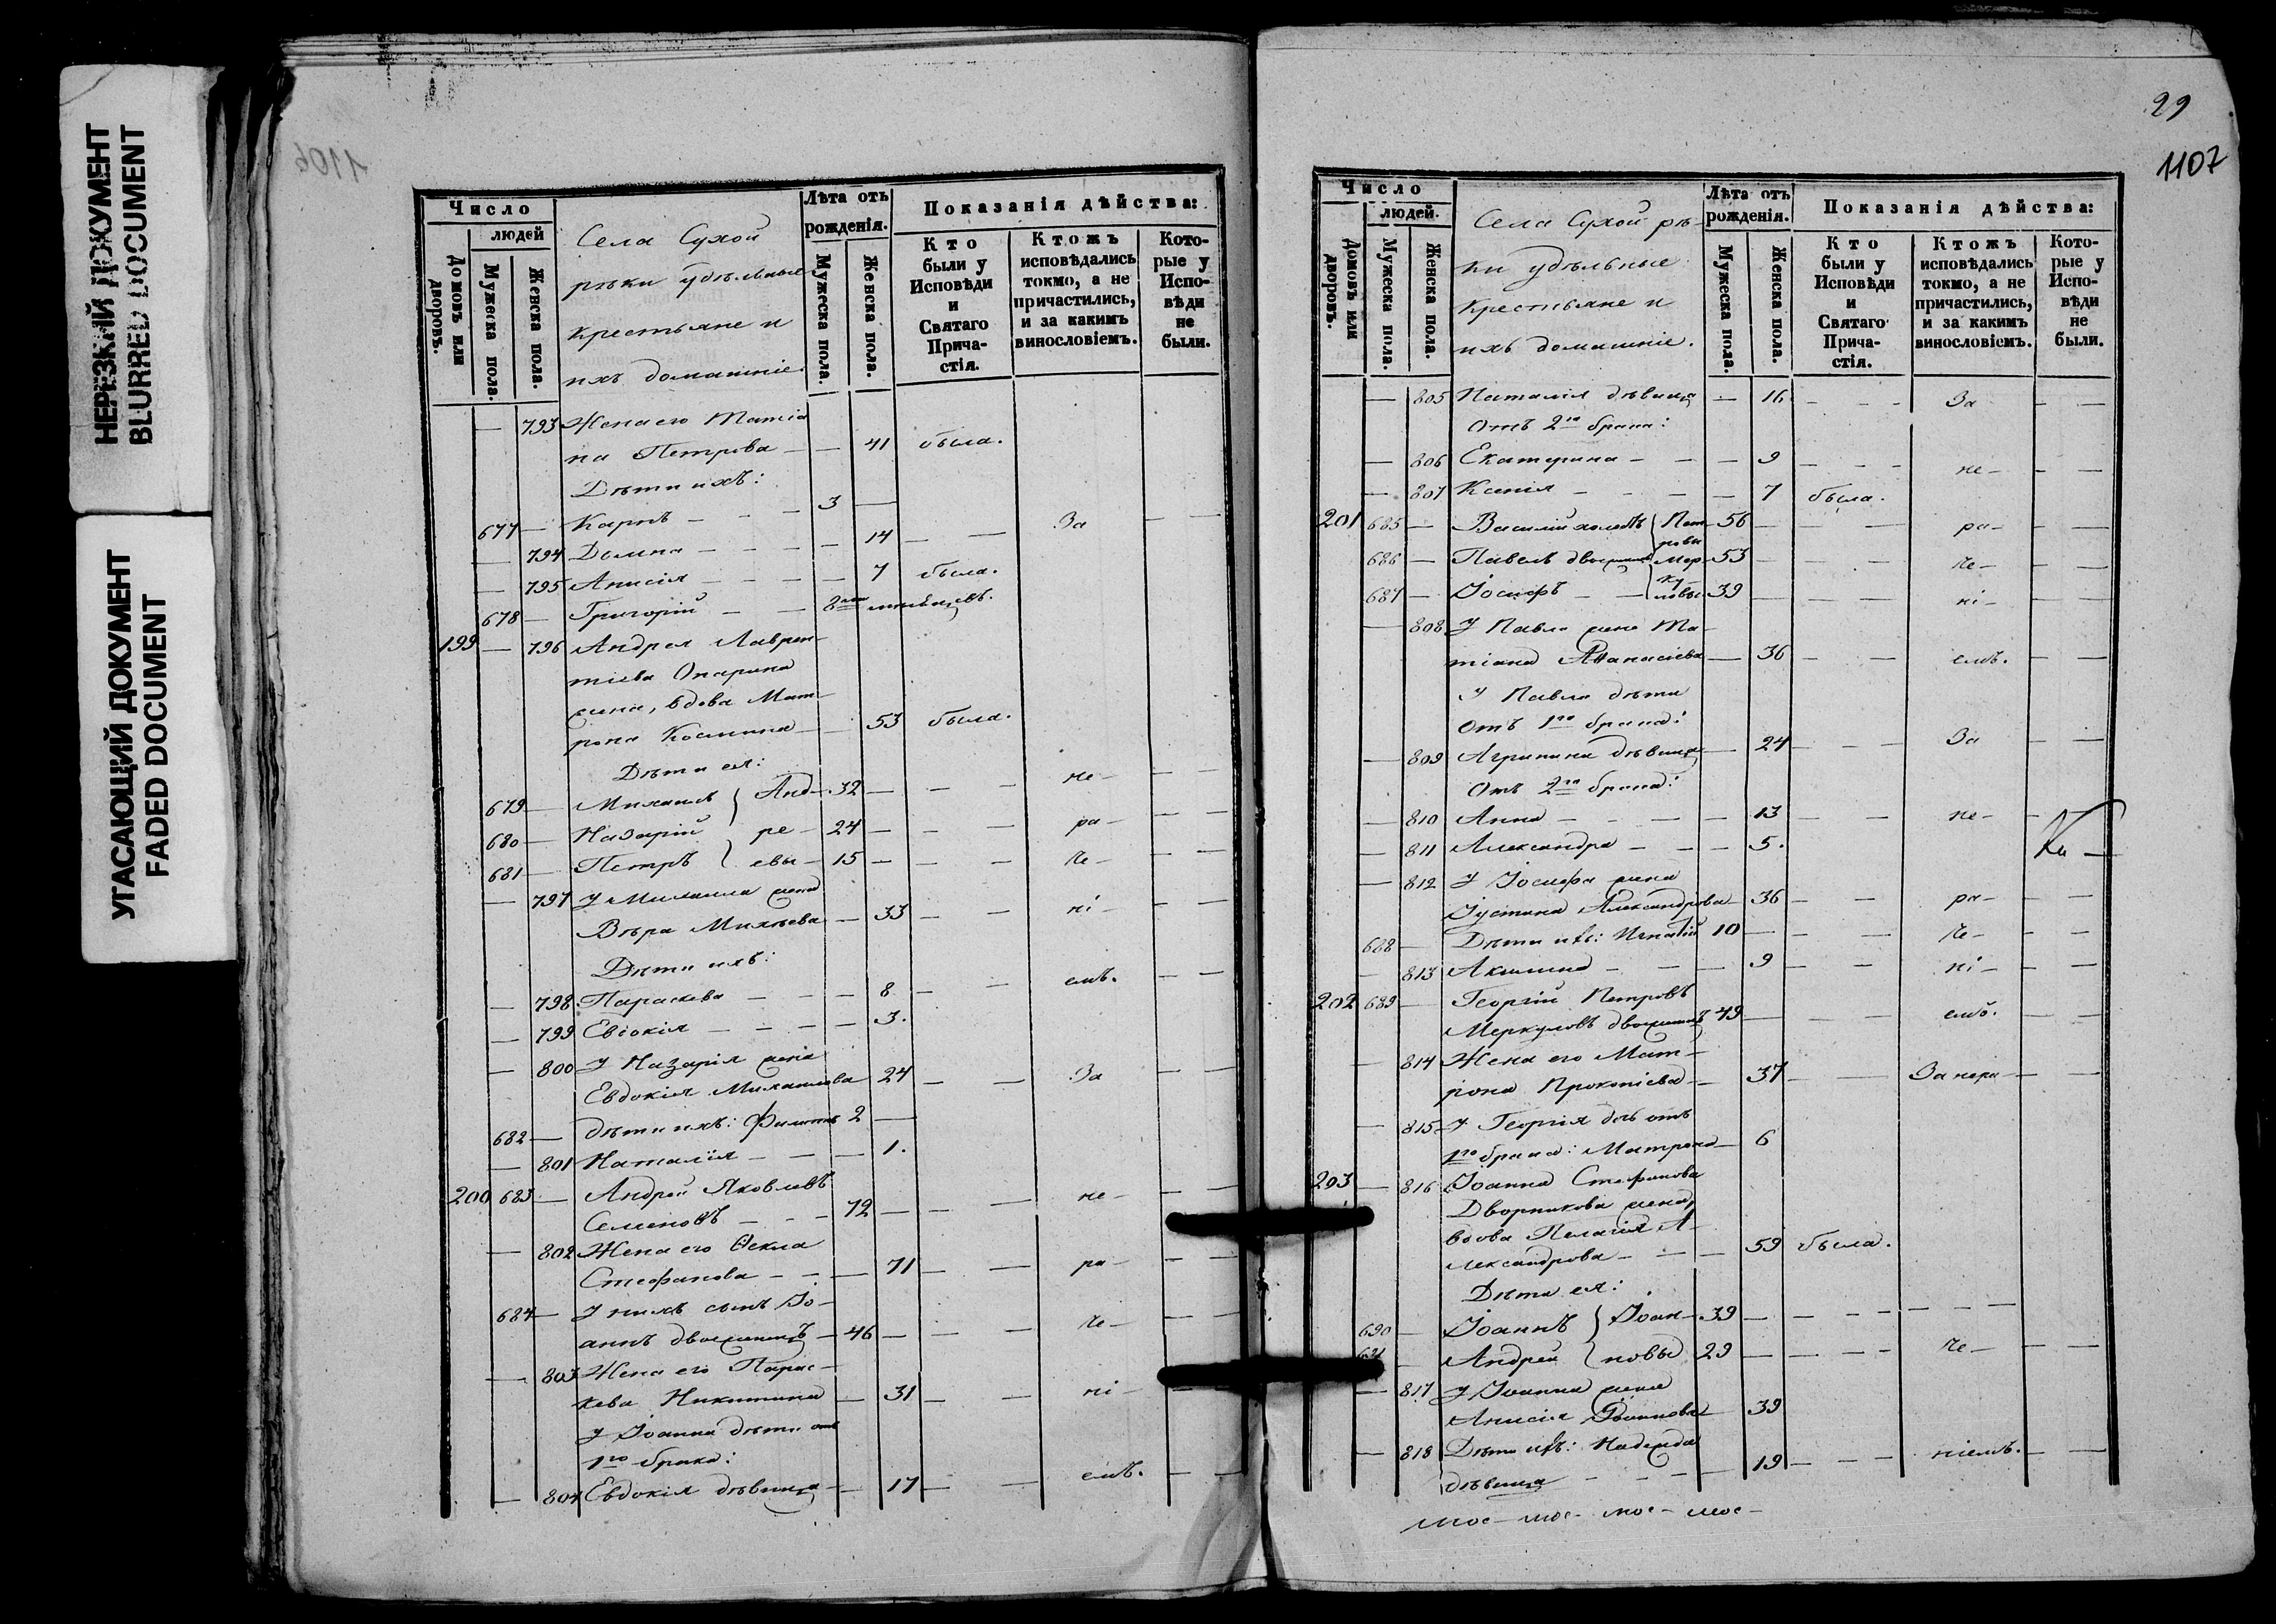 НЕРЕЗКИЙ ДОКУМЕНТ
BLURRED DOCUMENT
УГАСАЮЩИЙ ДОКУМЕНТ
FADED DOCUMENT
1106
Число
людей
Домовъ или дворовъ.
Мужеска пола.
Женска пола.
Села Сухой
рѣки удѣльные
крестьяне и
ихъ домашніе.
Лѣта отъ рожденія.
Мужеска пола.
Женска пола.
Показанія дѣйства:
Кто были у Исповѣди и Святаго Прича-стія.
Ктожъ исповѣдались токмо, а не причастились, и за какимъ винословіемъ.
Кото-рые у Испо-вѣди не были.
— 793 Жена его Татіа
на Петрова — — 41 была.
Дѣти ихъ:
677 — Карпъ — — — 3 —
— 794 Домна — — — — 14 — — За — —
— 795 Анисія — — — — 7 была.
678 — Григорій — — 8 мѣсяцевъ.
199 — 796 Андрея Лаврен-
тіева Опарина
жена, вдова Мат-
рона Космина — — 53 была.
Дѣти ея:
679 — Михаилъ } Анд- 32 — — — не — — —
680 — Назарій ре- 24 — — — ра — — —
681 — Петръ } евы — 15 — — — че — — —
— 797 У Михаила жена
Вѣра Михѣева — 33 — — ні — — —
Дѣти ихъ:
— 798 Параскева — — — 8 — — емъ. — —
— 799 Евдокія — — — — 3.
— 800 У Назарія жена
Евдокія Михаилова 24 — — За — —
682 — дѣти ихъ: Филиппъ 2 —
— 801 Наталія — — — 1.
200 683 — Андрей Яковлевъ
Семеновъ — — — 72 — — — не — — —
— 802 Жена его Ѳекла
Стефанова — — — 71 — — ра — — —
684 — У нихъ сынъ Іо-
аннъ двоеженецъ — 46 — — — че — — —
— 803 Жена его Парас-
кева Никитина — 31 — — ні — — —
У Іоанна дѣти отъ
1го брака:
— 804 Евдокія дѣвица — — 17 — — емъ. — —
29
1107
Число
людей.
Домовъ или дворовъ.
Мужеска пола.
Женска пола.
Села Сухой рѣ-
ки удѣльные
крестьяне и
ихъ домашніе.
Лѣта отъ рожденія.
Мужеска пола.
Женска пола.
Показанія дѣйства:
Кто были у Исповѣди и Святаго Прича-стія.
Ктожъ исповѣдались токмо, а не причастились, и за какимъ винословіемъ.
Кото-рые у Испо-вѣди не были.
— 805 Наталія дѣвица — 16 — — — За — —
Отъ 2го брака:
— 806 Екатерина — — — 9 — — — не — — —
— 807 Ксенія — — — — 7 была.
201 685 — Василій холостъ } Пет- 56 — — — ра —
ровы
686 — Павелъ двоеженецъ Мер- 53 — — — че — — —
687 — Іосифъ — — } ку-ловы 39 — — — ні — — —
— 808 У Павла жена Та-
тіана Аѳанасіева — 36 — — емъ. — —
У Павла дѣти
Отъ 1го брака:
— 809 Агрипина дѣвица — 24 — — — За — —
Отъ 2го брака:
— 810 Анна — — — — 13 — — не — —
— 811 Александра — — — 5.
— 812 У Іосифа жена
Іустина Александрова 36 — — ра — — —
688 — Дѣти ихъ: Игнатій 10 — — — че — — —
— 813 Акилина — — — 9 — — ні — — —
202 689 — Георгій Петровъ
Меркуловъ двоеженецъ 49 — — — емъ. — —
— 814 Жена его Мат-
рона Прокопіева — 37 — — За нера — — —
— 815 У Георгія дѣти отъ
1го брака: Матрона — 6
203 — 816 Іоанна Стефанова
Дворникова жена,
вдова Пелагія А-
лександрова — — — 59 была.
Дѣти ея:
690 — Іоаннъ } Іоан- 39 — — — — — — —
691 — Андрей } новы 29 — — — — че — — —
— 817 У Іоанна жена
Анисія Іоаннова — 39
— 818 Дѣти ихъ: Надежда
дѣвица — — — — 19 — — — ніемъ. — —